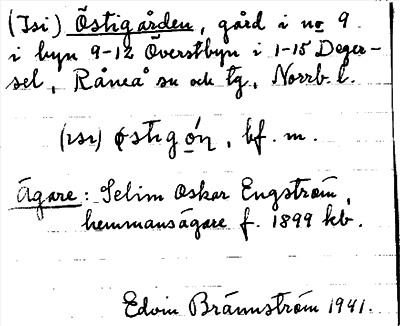 (Isi) Östigården, gård i no 9
i byn 9-12 Överstbyn i 1-15 Deger-
sel, Råneå sn och tg, Norrb. l.
(ɪsɪ) østigón, bf. m.
Ägare: Selim Oskar Engström,
hemmansägare f. 1899 kb.
Edvin Brännström 1941.